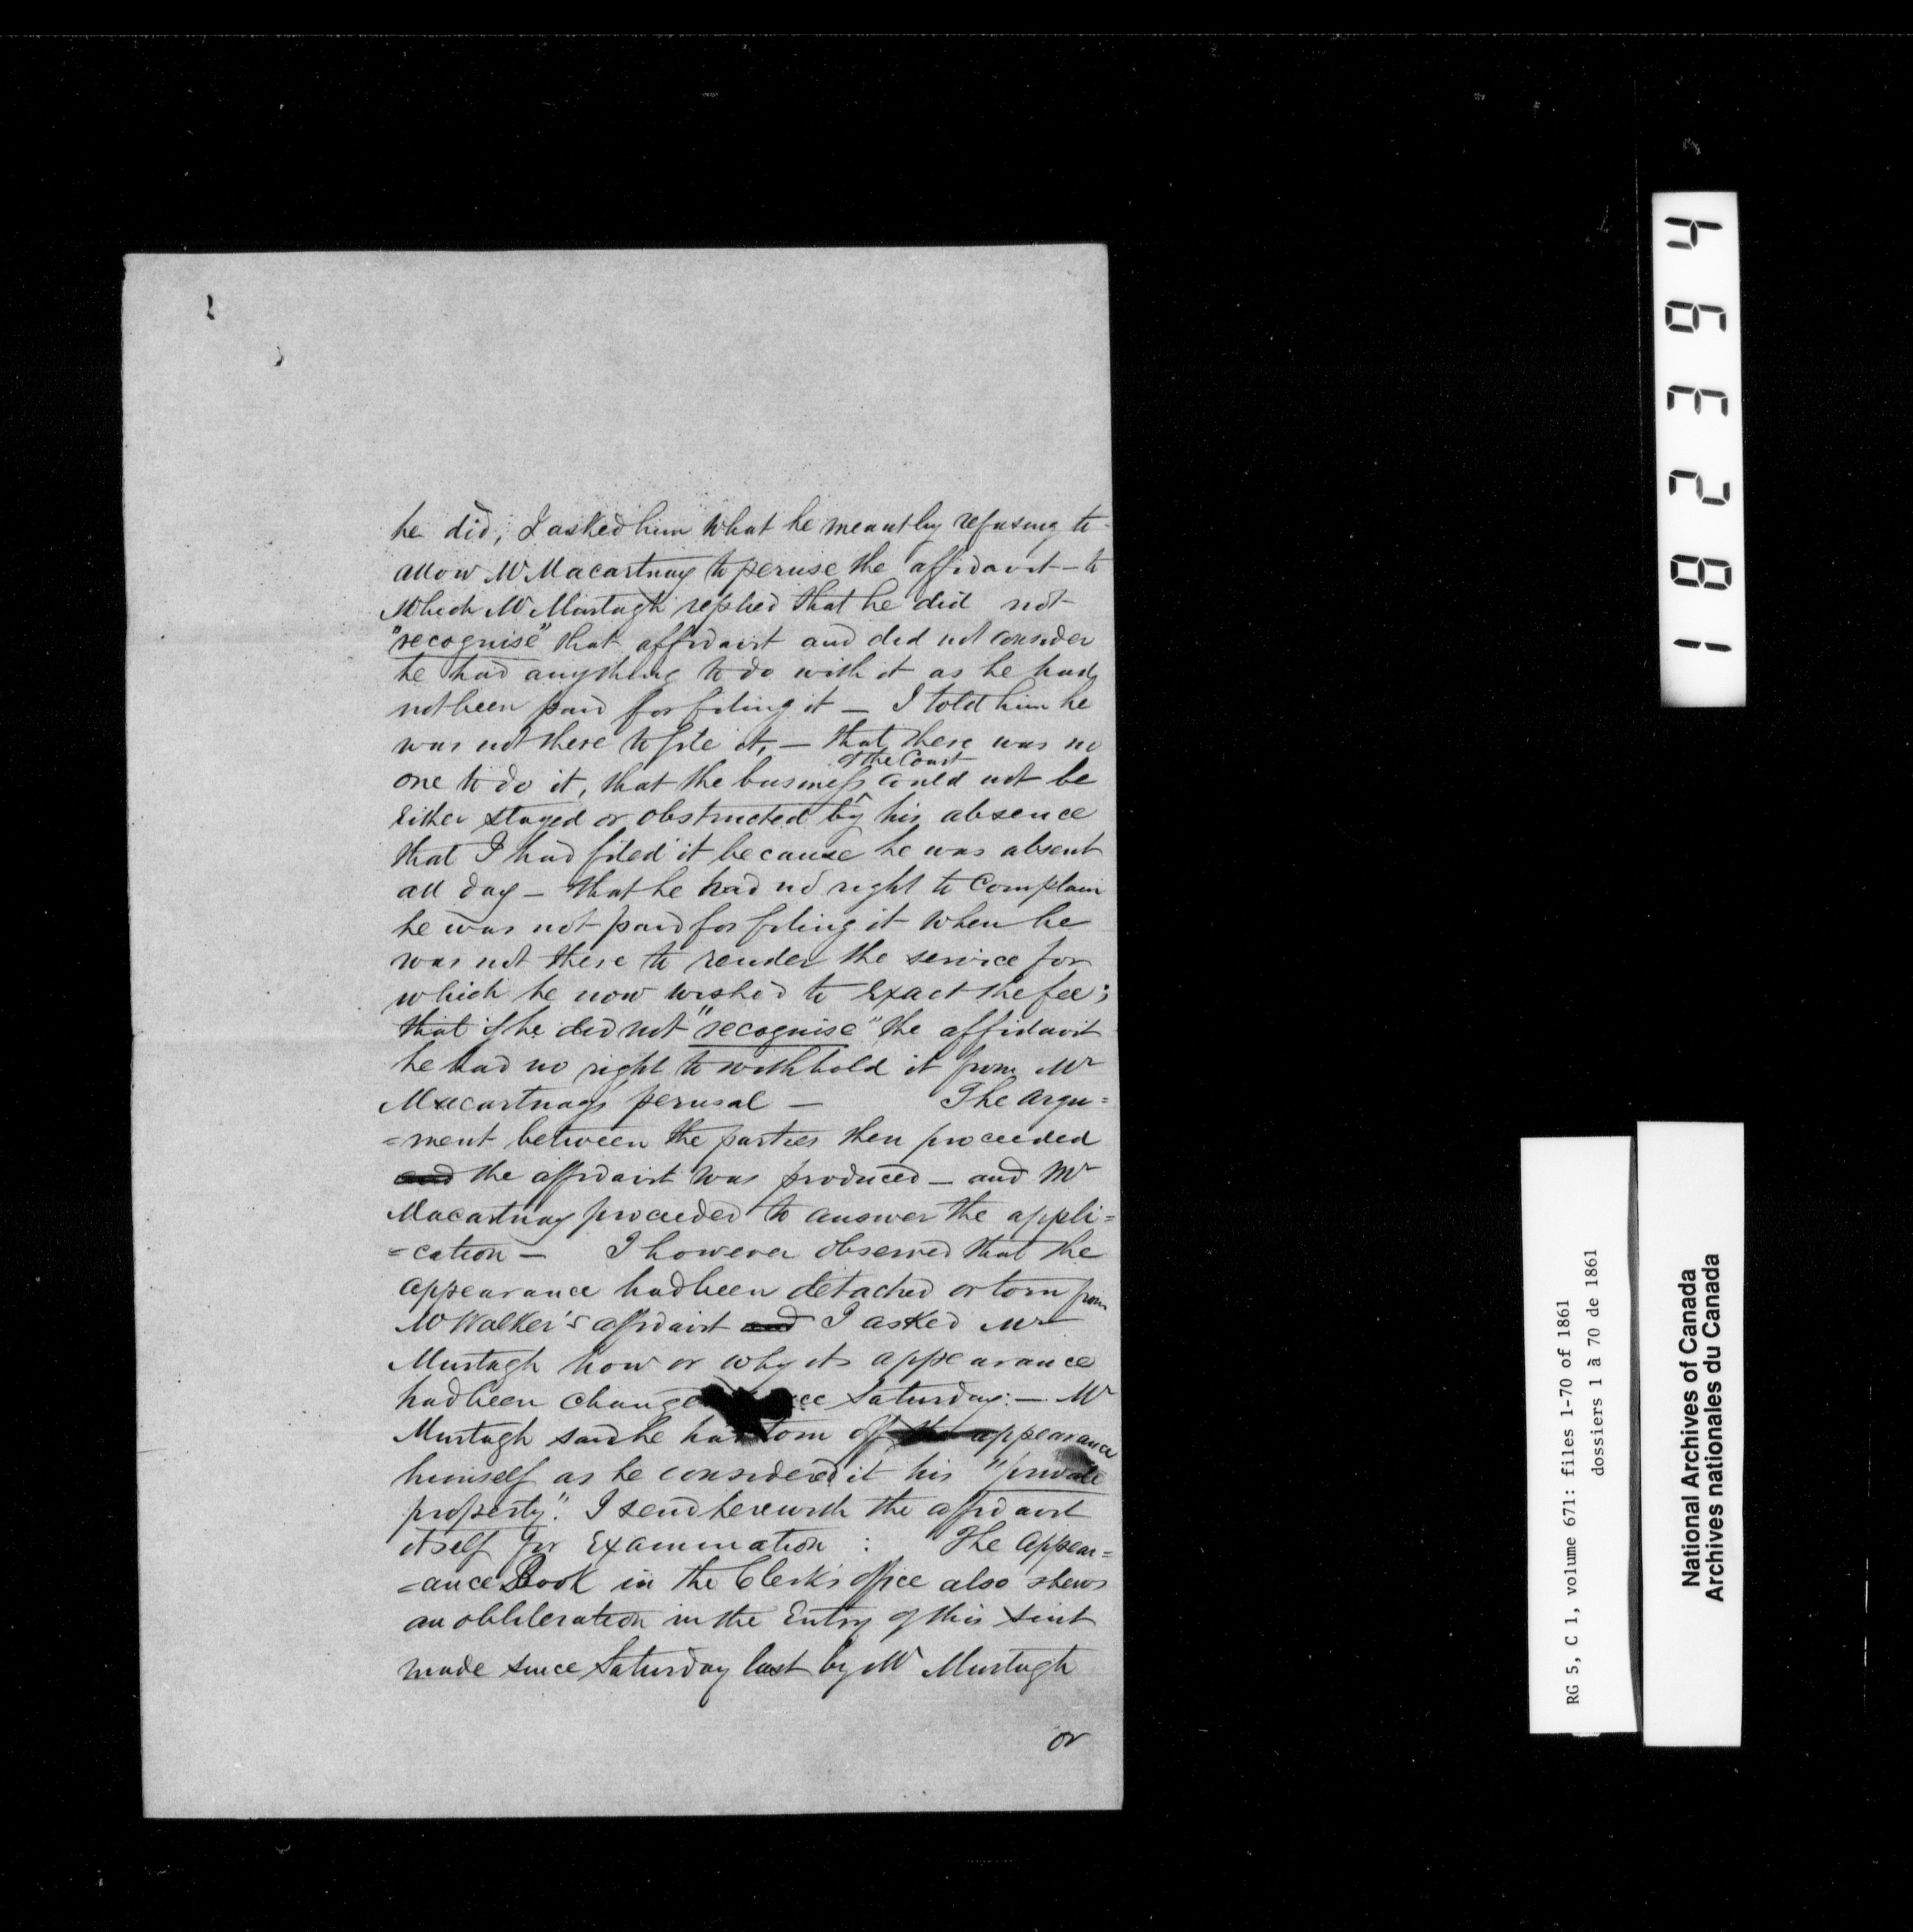 he did, I asked him what he meant by refusing to
allow Mr Macartnay to peruse the affidavit – to
which Mr Murtagh replied that he did not
"recognise" that affidavit and did not consider
he had anything to do with it as he had
not been paid for filing it – I told him he
was not there to file it, – that there was no
of the Court
one to do it, that the business could not be
either stayed or obstructed by his absence
that I had filed it because he was absent
all day – that he had no right to complain
he was not paid for filing it when he
was not there to render the service for
which he now wished to exact the fee;
that if he did not "recognise" the affidavit
he had no right to withhold it from Mr
Macartnay's perusal – The argu=
=ment between the parties then proceeded
and the affidavit was produced – and Mr
Macartnay proceeded to answer the appli=
=cation – I however observed that the
appearance had been detached or torn from
Mr Walker's affidavit and I asked Mr
Murtagh how or why its appearance
had been changed since Saturday: – Mr
Murtagh said he had torn off the appearance
himself as he considered it his "private
property". I send herewith the affidavit
itself for Examination : The Appear=
=ance Book in the Clerk's office also shews
an obliteration in the Entry of this suit
made since Saturday last by Mr Murtagh
or
182394
RG 5, C 1, volume 671: files 1-70 of 1861
dossiers 1 à 70 de 1861
National Archives of Canada
Archives nationales du Canada